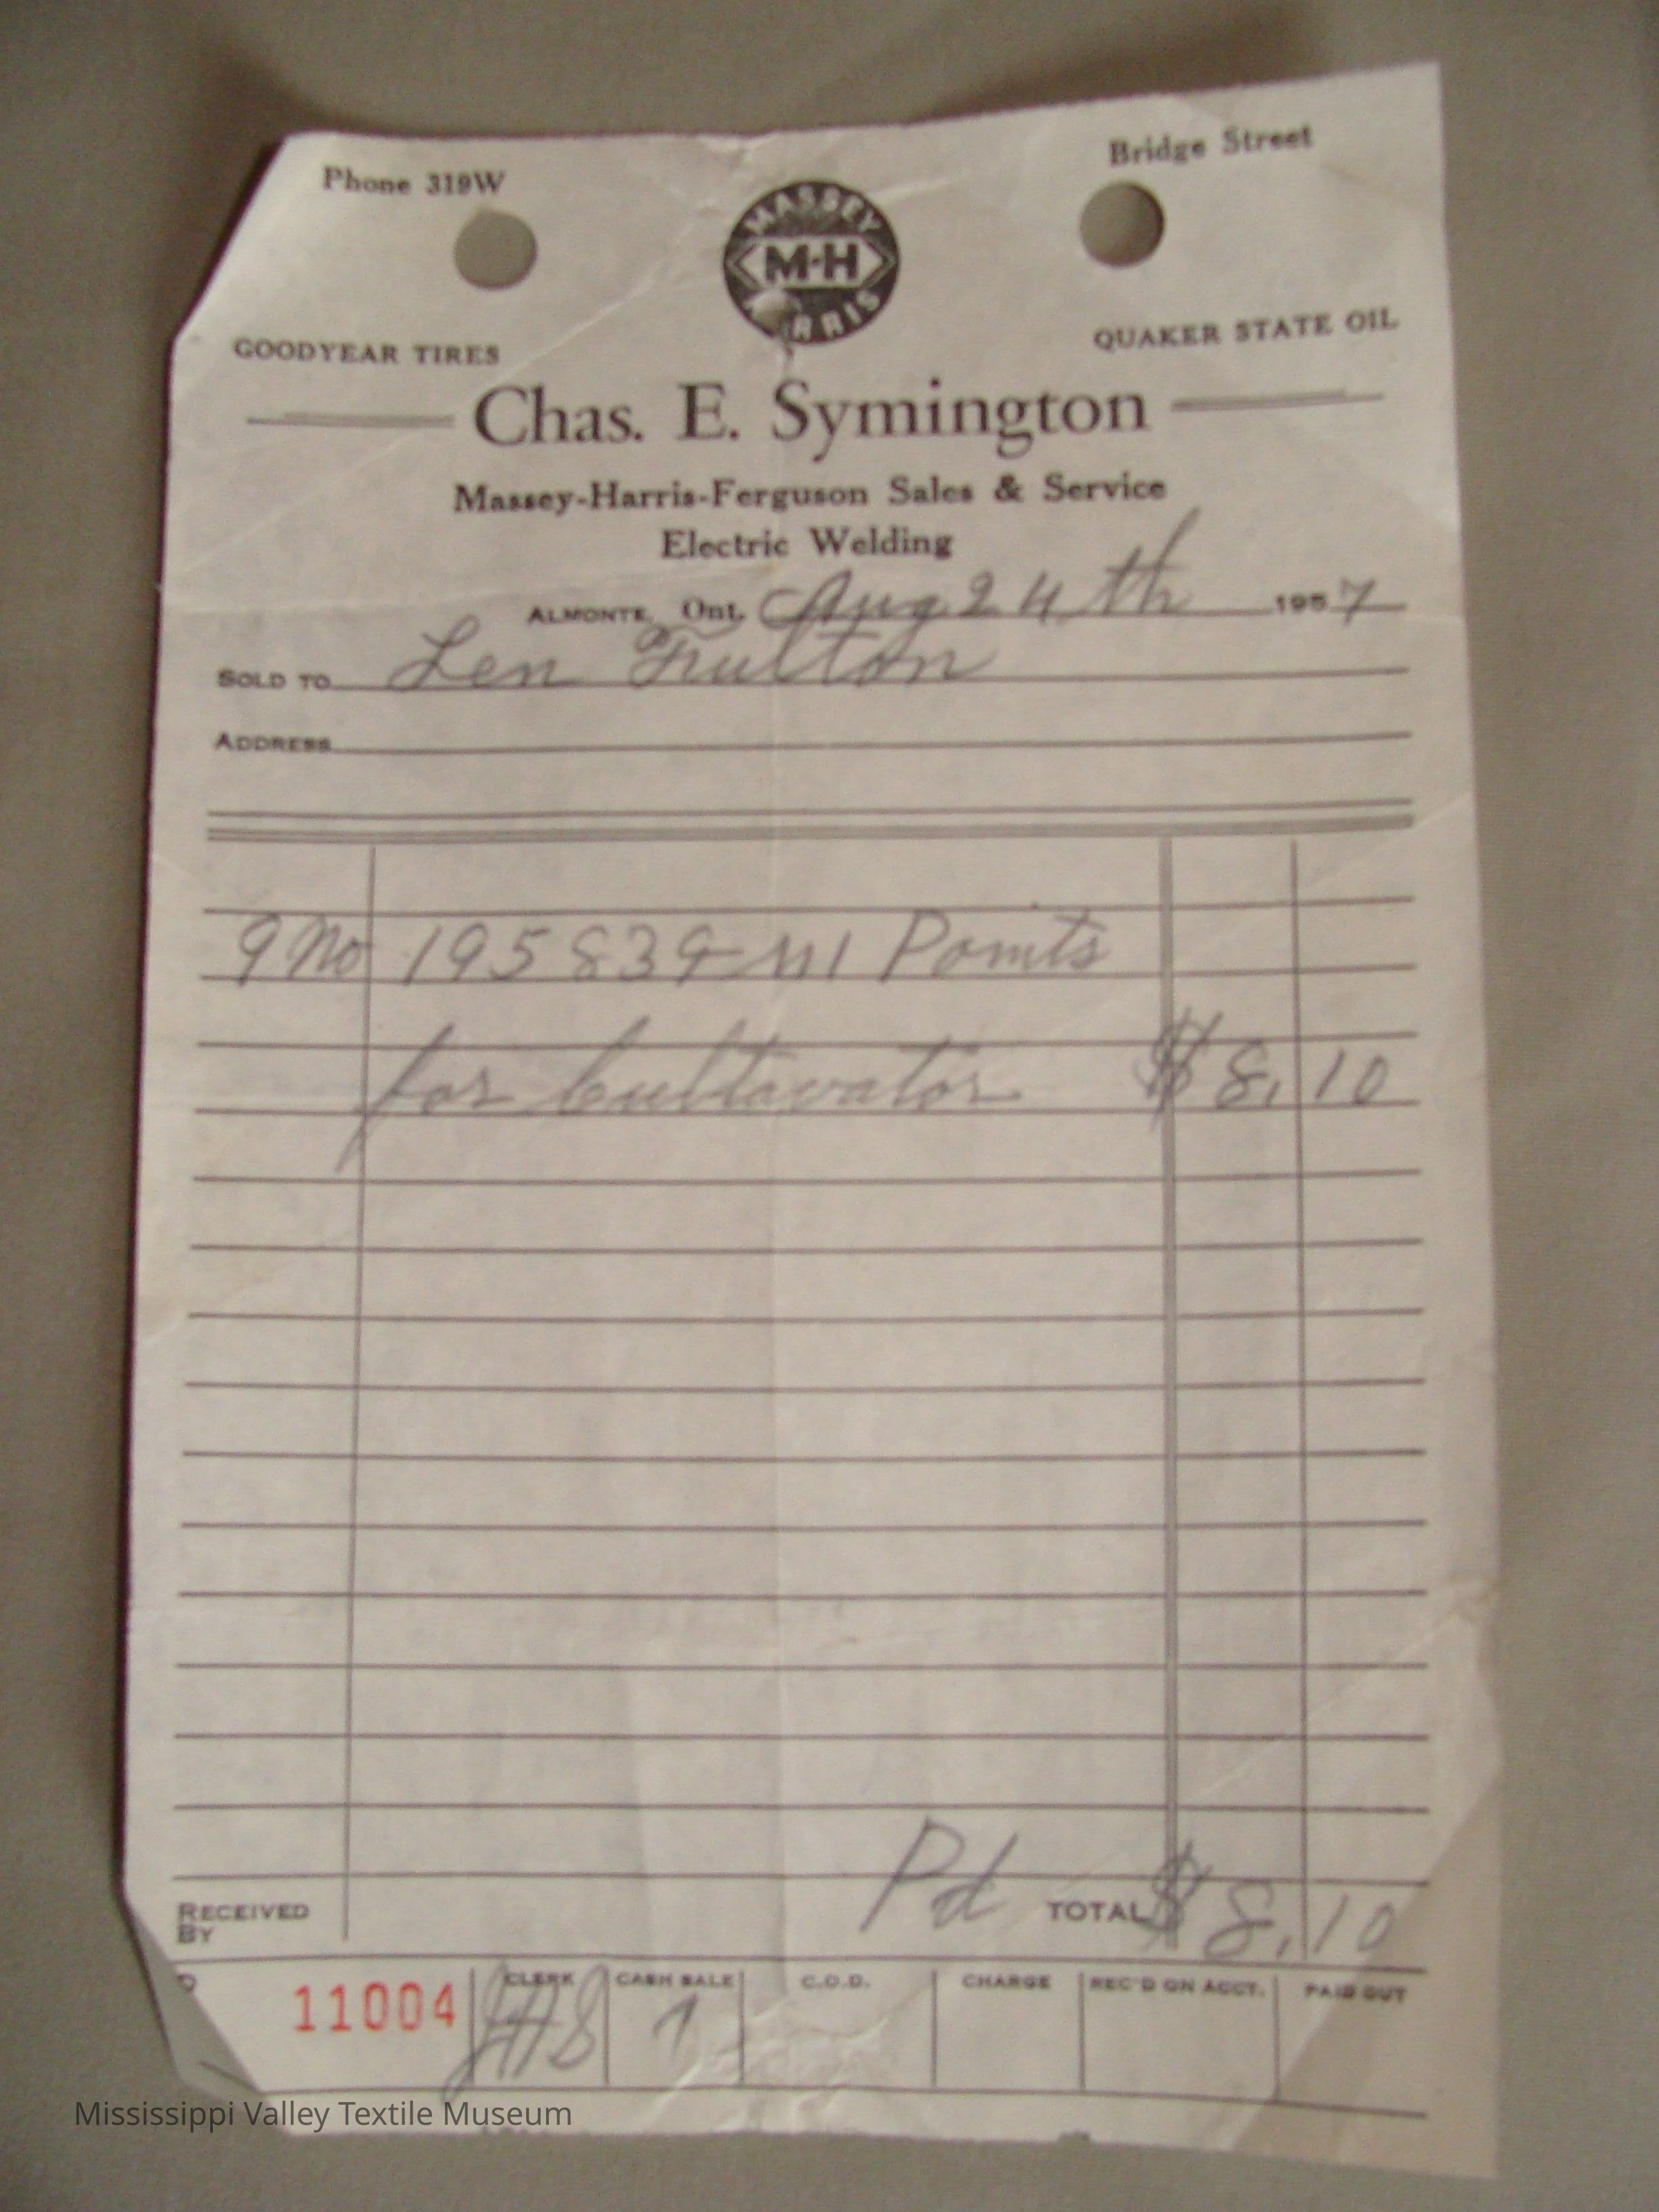 Phone 319W
Bridge Street
MASSEY
M-H
HARRIS
GOODYEAR TIRES
QUAKER STATE OIL
Chas. E. Symington
Massey-Harris-Ferguson Sales & Service
Electric Welding
ALMONTE, Ont. Aug 24th 1957
SOLD TO Len Fulton
ADDRESS
9 No 195839 M1 Points
for Cultavator $8.10
RECEIVED BY
Pd TOTAL $8.10
11004
CLERK CASH SALE C.O.D. CHARGE REC'D ON ACCT. PAID OUT
Mississippi Valley Textile Museum